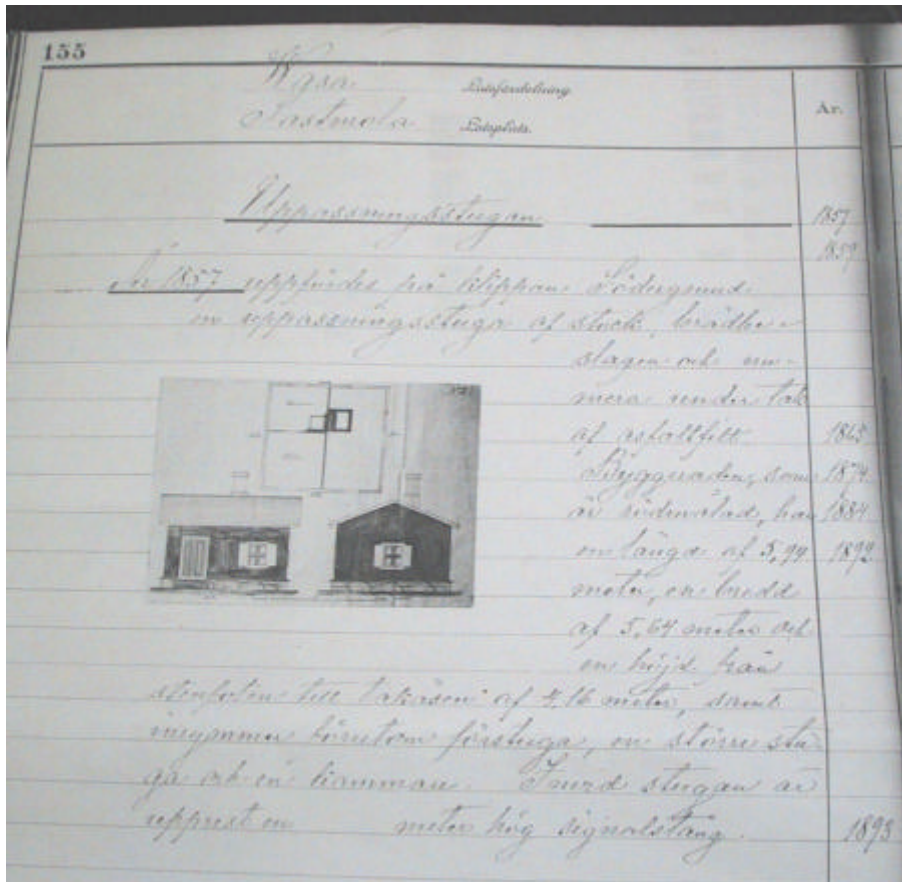 155
Wasa Lotsfördelning
Lotsplats. År.
Uppassningsstugan 1857
1859
År 1857 uppfördes på klippan Södergrund
en uppassningsstuga af stock, brädbe-
slagen och nu-
mera under tak
af asfaltfilt 1865
Byggnaden, som 1874
är rödmålad, har 1884
en längd af 5,94 1892
meter, en bredd
af 5,64 meter och
en höjd från
stenfoten till takåsen af 4,16 meter, samt
inrymmer förutom förstuga, en större stu-
ga och en kammare. Invid stugan är
upprest en meter hög signalstång. 1893